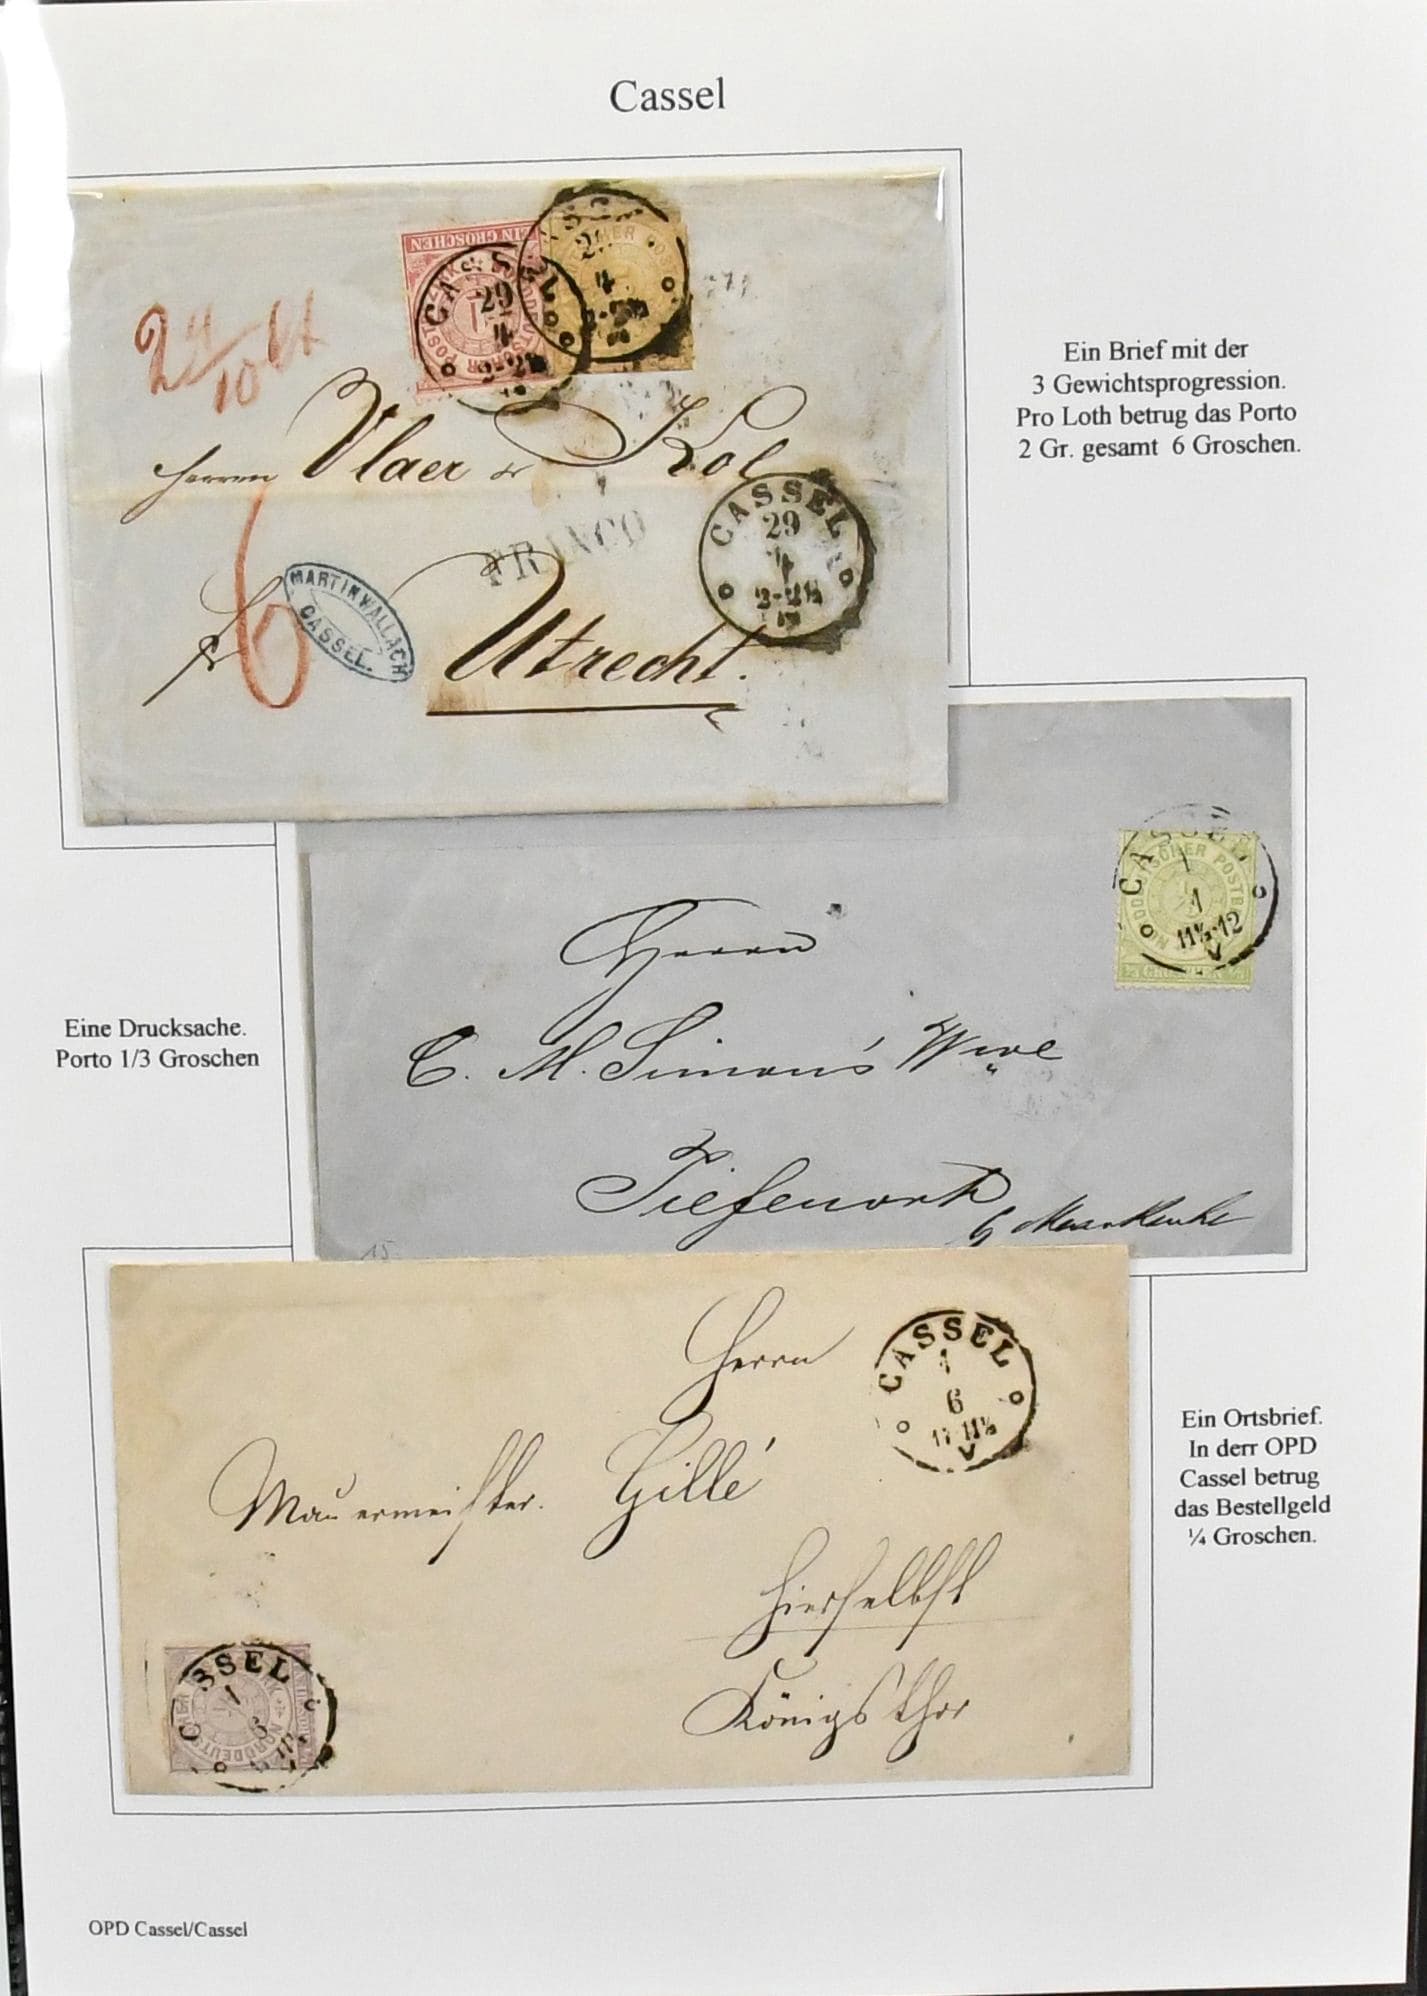 Cassel
EIN GROSCHEN
CASSEL
29
4
CASSEL
29
4
2 4/10 Lt
Ein Brief mit der
3 Gewichtsprogression.
Pro Loth betrug das Porto
2 Gr. gesamt 6 Groschen.
Herren Vlaer & Kol
CASSEL
29
4
2-2½
FRANCO
6
MARTIN WALLACH
CASSEL.
Utrecht.
CASSEL
1
1
11½-12
V
NORDDEUTSCHER POSTB
⅓ GROSCHEN ⅓
Herrn
C. M. Simon's Wwe
Tiefenort
Eine Drucksache.
Porto 1/3 Groschen
15
Herrn
CASSEL
1
6
11-11½
V
Mauermeister. Gillé
Hierselbst
Königsthor
SSEL
1
6
NORDDEUTSCHER
Ein Ortsbrief.
In derr OPD
Cassel betrug
das Bestellgeld
¼ Groschen.
OPD Cassel/Cassel